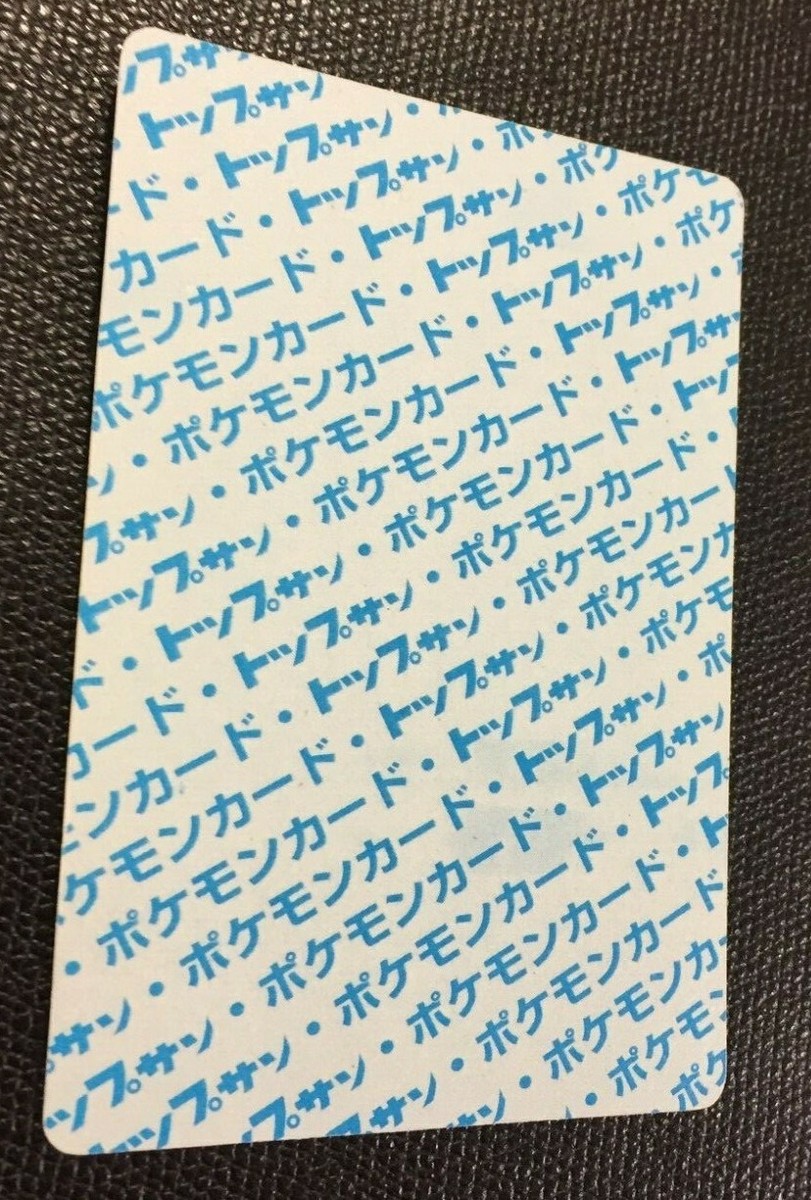 プサン
・トップサン
ード・トップサン・
カード・トップサン・ポ
モンカード・トップサン・ポケ
ポケモンカード・トップサン・ポケモ
ン・ポケモンカード・トップサン・ポケ
プサン・ポケモンカード・トップサン・
トップサン・ポケモンカード・トップサ
ド・トップサン・ポケモンカード・トッ
カード・トップサン・ポケモンカード・
ンカード・トップサン・ポケモンカード
ケモンカード・トップサン・ポケモンカ
・ポケモンカード・トップサン・ポケモ
サン・ポケモンカード・トップサン・ポ
ップサン・ポケモンカード・トップサン
トップサン・ポケモンカード・トップ
プサン・ポケモンカード・ト
トップサン・ポケモンカード
サン・ポケモンカー
ン・ポケモ
ポケ